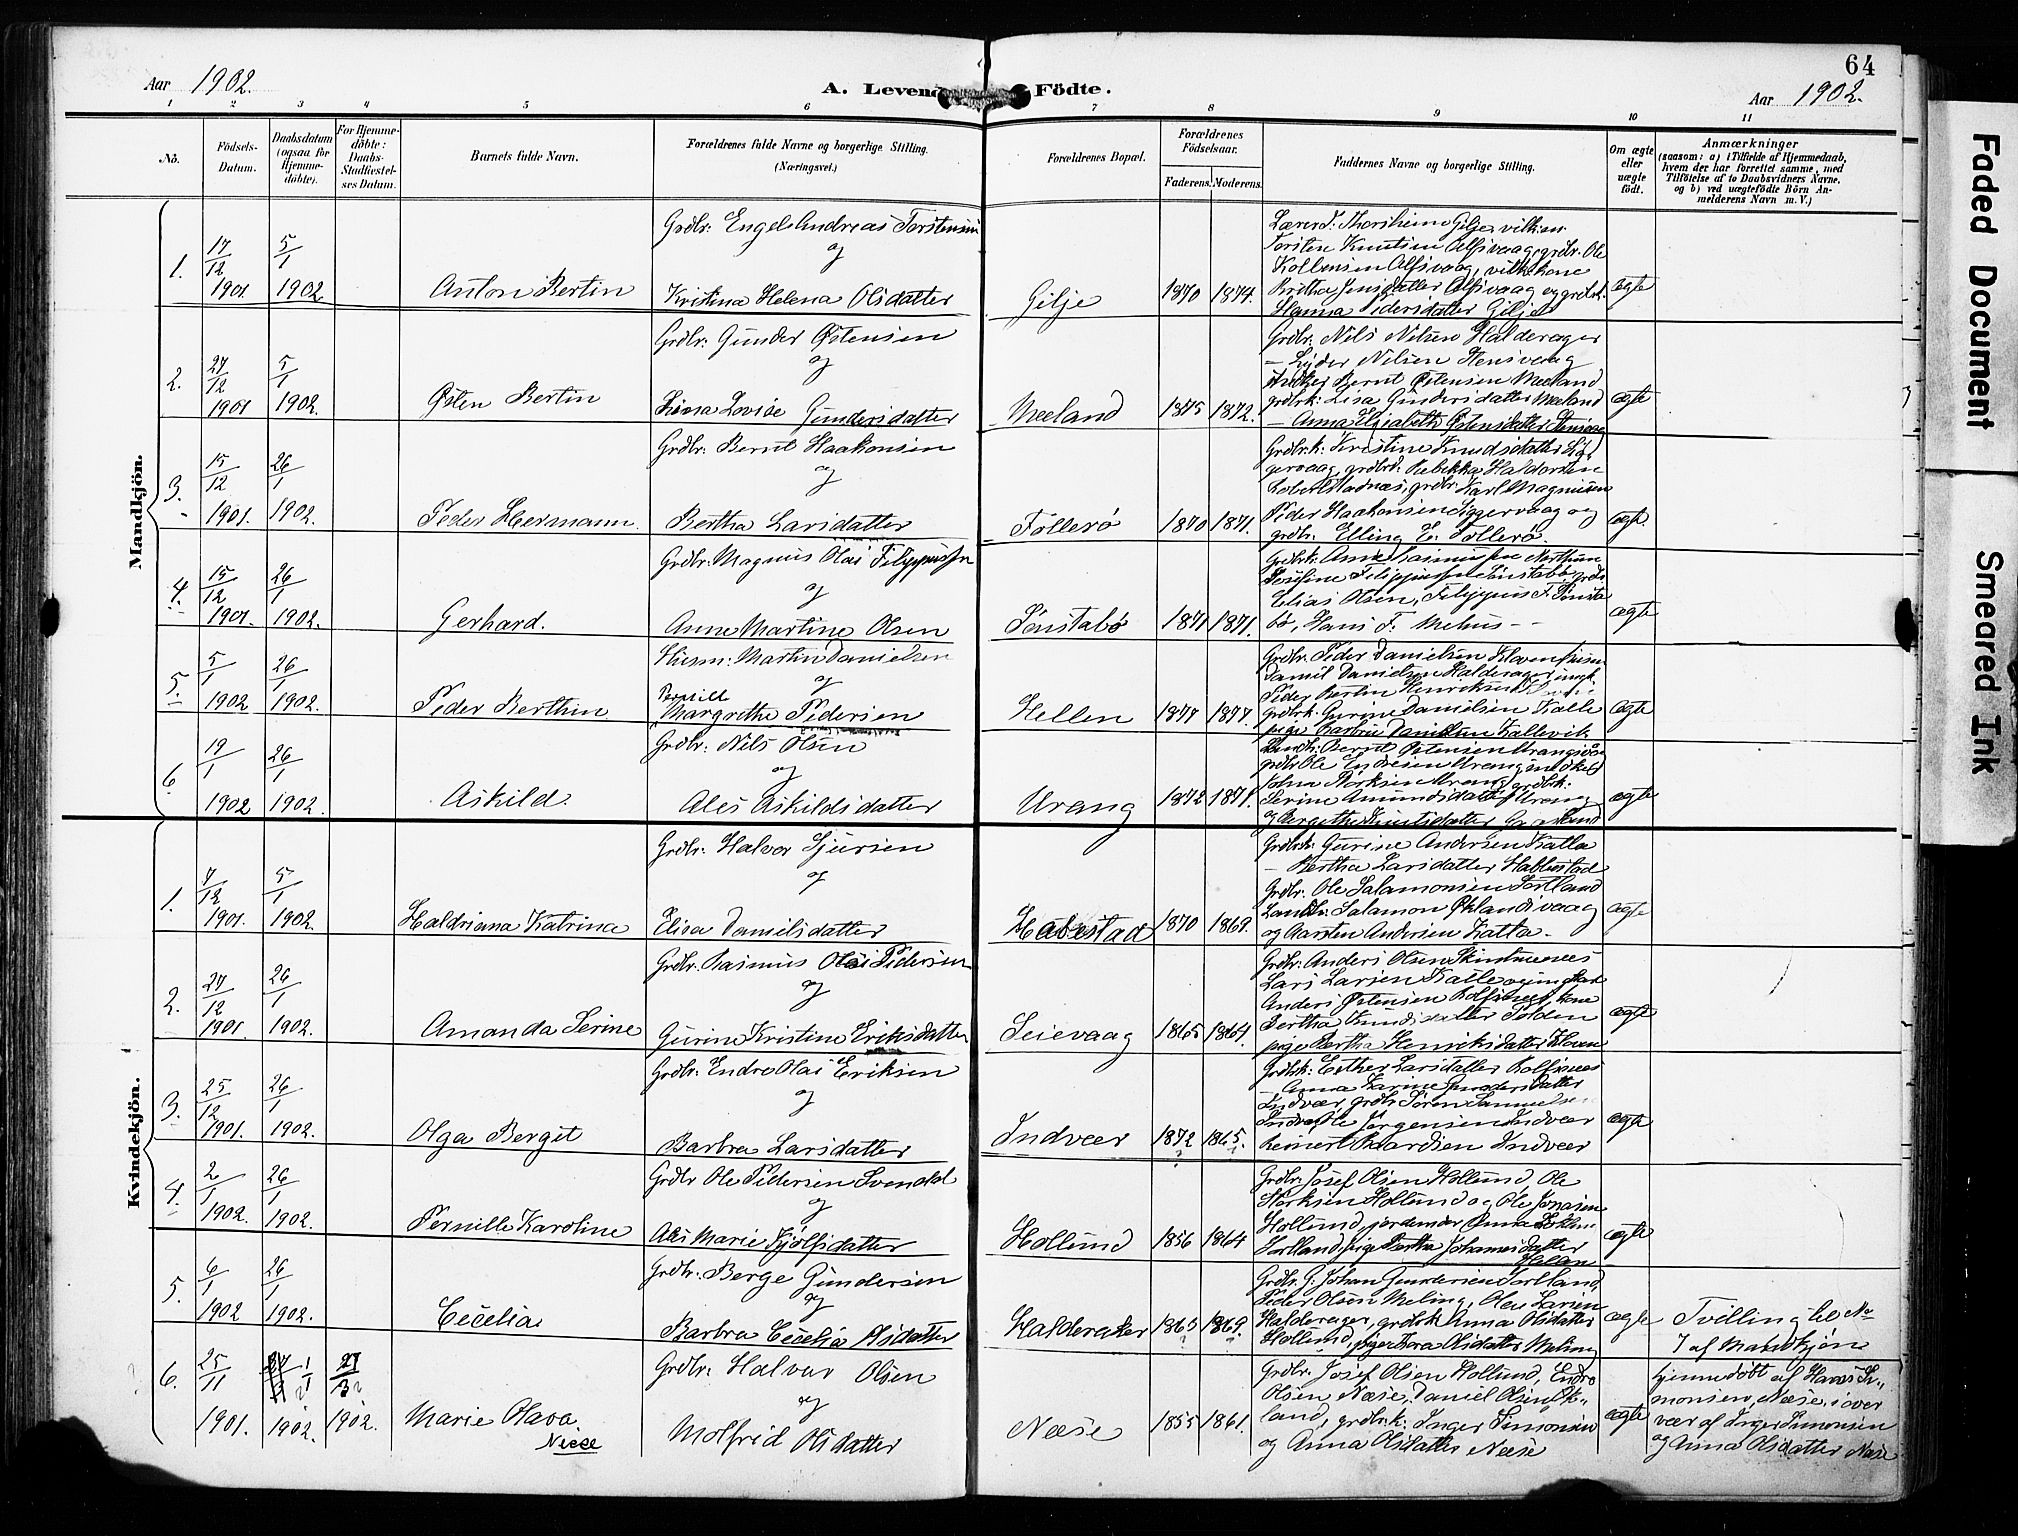 64
Aar 1902.
A. Levende Födte.
Aar 1902.
1 2 3 4 5 6 7 8 9 10 11
No.
Födsels-Datum.
Daabsdatum (ogsaa for Hjemme-döbte).
For Hjemme-döbte: Daabs-Stadfæstel-ses Datum.
Barnets fulde Navn.
Forældrenes fulde Navne og borgerlige Stilling.
(Næringsvei.)
Forældrenes Bopæl.
Forældrenes Födselsaar.
Faderens. Moderens.
Faddernes Navne og borgerlige Stilling.
Om ægte eller uægte födt.
Anmærkninger
(saasom: a) i Tilfælde af Hjemmedaab,
hvem der har forrettet samme, med
Tilföielse af to Daabsvidners Navne.
og b) ved uægtefödte Börn An-
melderens Navn m. V.)
Mandkjön.
1. 17/12 1901 5/1 1902 Anton Bertin
Grdbr: Engel Andreas Torstensen
og
Kristina Helena Olsdatter
Gilje 1870 1874.
Torsten Knutsen Alfsvaag, grdbr. Ole
Hanna Pedersdatter Gilje
ægte
2. 27/12 1901 5/1 1902. Østen Bertin
Grdbr: Gunder Østensen
og
Lina Lovise Gundersdatter
Mæland 1875 1872.
Grdbr: Nils Nilsen Halderager
– Lyder Nilsen Hensvaag
Bernt Østensen Mæland
grdbrk: Lisa Gundersdatter Mæland
– Anna Elisabeth Østensdatter
ægte
3. 15/12 1901. 26/1 1902. Peder Hermann
Grdbr: Bernt Haakonsen
og
Bertha Larsdatter
Føllerø 1870 1871.
Grdbrk: Kristine Knudsdatter Sig-
gervaag, grdbrd: Rebekka Haldorsen
grdbr: Karl Magnusen
Peder Haakonsen Siggervaag og
grdbr. Elling E. Føllerø.
ægte
4. 15/12 1901. 26/1 1902. Gerhard.
Grdbr: Magnus Olai
og
Anne Martine Olsen
Sønstabø 1871 1871.
Elias Olsen,
bø, Hans F. Mehus - -
ægte
5. 5/1 1902 26/1 1902. Peder Berthin
Husm: Martin Danielsen
og
Pernille
Margrethe Pedersen
Hellen 1877 1877.
Grdbr: Peder Danielsen
Daniel Danielsen Halderager ungk
Peder Bertin Henriksen
grdbrk: Gurine Danielsen Kalle
pige Barbru Danielsen Kallevik
ægte
6. 19/1 1902 26/1 1902. Askild.
Grdbr: Nils Olsen
og
Ales Askildsdatter
Urang 1872 1871.
Bernt Østensen
grdbr Ole Endresen Urang
Serine Amundsdatter Urang
ægte
Kvindekjön.
1. 7/12 1901. 5/1 1902. Haldriana Katrina
Grdbr: Halvor Sjursen
og
Elisa Danielsdatter
Habestad 1870 1869.
Grdbrk: Gurine Andersen Katla
– Bertha Larsdatter Hablestad
Grdbr: Ole Salamonsen Sortland
Landh: Salamon Øklandsvaag
og Aarsten Andersen Katla.
ægte
2. 27/12 1901. 26/1 1902. Amanda Serine
Grdbr: Rasmus Olai Pedersen
og
Gurine Kristine Eriksdatter
Seievaag 1865 1864.
Grdbr: Anders Olsen
Lars Larsen Kalle og ungkar
Anders Østensen Rolfsnes, kone
Bertha Knudsdatter
pige Bertha Henriksdatter
ægte
3. 25/12 1901. 26/1 1902. Olga Bergit
Grdbr: Endre Olai Eriksen
og
Barbra Larsdatter
Indvær 1872 1865.
Grdbrk: Esther Larsdatter Rolfsnes
– Anna Karine Gundersdatter
Indvær, grdbr Søren Samuelsen
Indvær Ole Jørgensen Indvær
Reinert Baardsen Indvær
ægte
4. 2/1 1902. 26/1 1902. Pernille Karoline
Grdbr Ole Pedersen Svendal
og
Ales Marie Kjølfsdatter
Hollund 1856 1864
Grdbr. Josef Olsen Hollund, Ole
Størksen Hollund og Ole Jonasen
Hollund, jordemor Anna
Hollund, pige Bertha Johannesdatter
Hellen
ægte
5. 6/1 1902 26/1 1902. Cecelia
Grdbr: Berge Gundersen
og
Barbra Cecelia Olsdatter
Halderaker 1865 1869.
Grdbr. G. Johan Gundersen Sortland
Peder Olsen Meling, Oles Larsen
Halderager, grdbrk Anna Olsdatter
Hollund, pige Kara Olsdatter Meling
ægte
Tvilling til No
7 af Mandkjøn
6. 25/11 1901. 1/1 1902. 1902. Marie Olava
Næse
Grdbr: Halvar Olsen
og
Molfrid Olsdatter
Næse 1855 1861.
Grdbr. Josef Olsen Hollund, Endre
Olsen Næse, Daniel Olsen Øk-
land, grdbrk: Inger Simonsen
og Anna Olsdatter Næse
ægte
hjemmedöbt af Hans Si-
monsen, Næse, i over
vær af Inger Simonsen
og Anna Olsdatter Næse
Faded Document
Smeared Ink